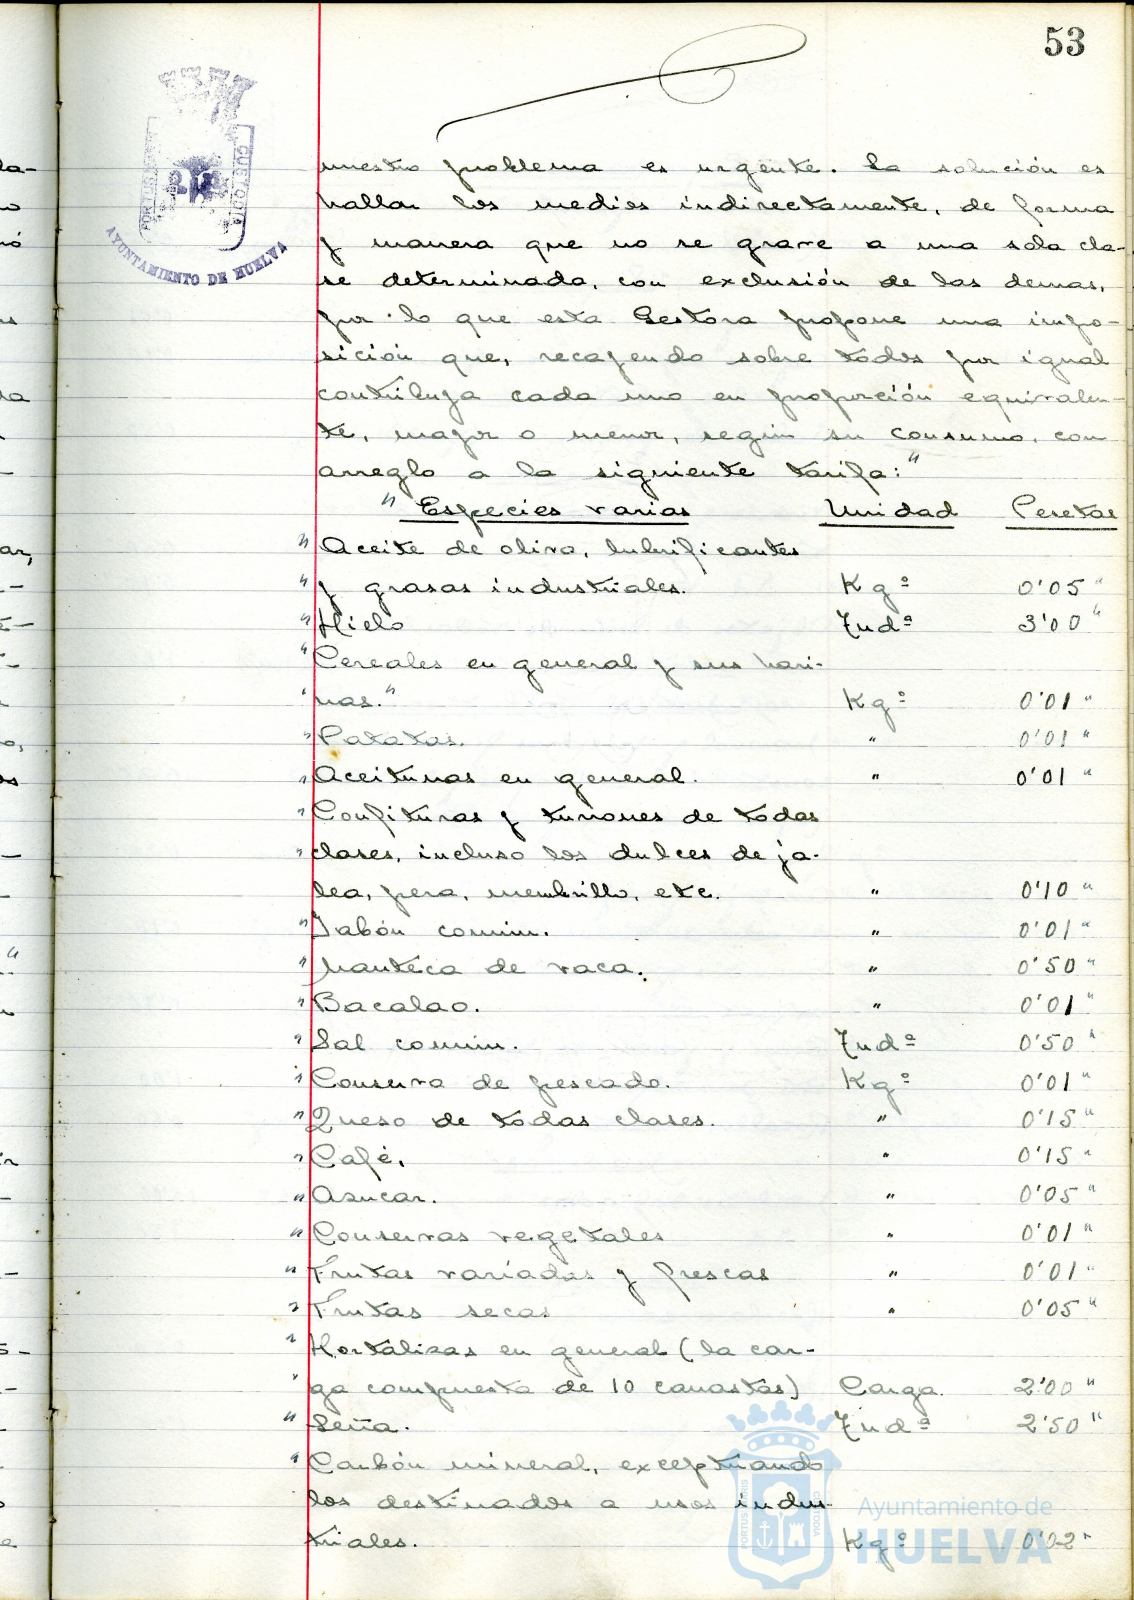 53
AYUNTAMIENTO DE HUELVA
nuestro problema es urgente. La solución es
hallar los medios indirectamente, de forma
y manera que no se grave a una sola cla-
se determinada, con exclusión de las demas,
por lo que esta Gestora propone una impo-
sición que, recayendo sobre todos por igual
contribuya cada uno en proporción equivalen-
te, mayor o menor, según su consumo, con
arreglo a la siguiente tarifa:"
" Especies varias Unidad Pesetas
" Aceite de oliva, lubrificantes
" y grasas industriales. Kgº 0'05 "
" Hielo Tndª 3'00 "
" Cereales en general y sus hari-
" nas." Kgº 0'01 "
" Patatas. " 0'01 "
" Aceitunas en general. " 0'01 "
" Confituras y turrones de todas
" clases, incluso los dulces de ja-
lea, pera, membrillo, etc. " 0'10 "
" Jabón común. " 0'01 "
" Manteca de vaca. " 0'50 "
" Bacalao. " 0'01 "
" Sal común. Tndª 0'50 "
" Conserva de pescado. Kgº 0'01 "
" Queso de todas clases. " 0'15 "
" Café. " 0'15 "
" Asucar. " 0'05 "
" Conservas vegetales " 0'01 "
" Frutas variadas y frescas " 0'01 "
" Frutas secas " 0'05 "
" Hortalizas en general (la car-
" ga compuesta de 10 canastas) Carga. 2'00 "
" Leña. Tndª 2'50 "
" Carbón mineral, exceptuando
los destinados a usos indus-
triales. Kgº 0'02 "
Ayuntamiento de
HUELVA